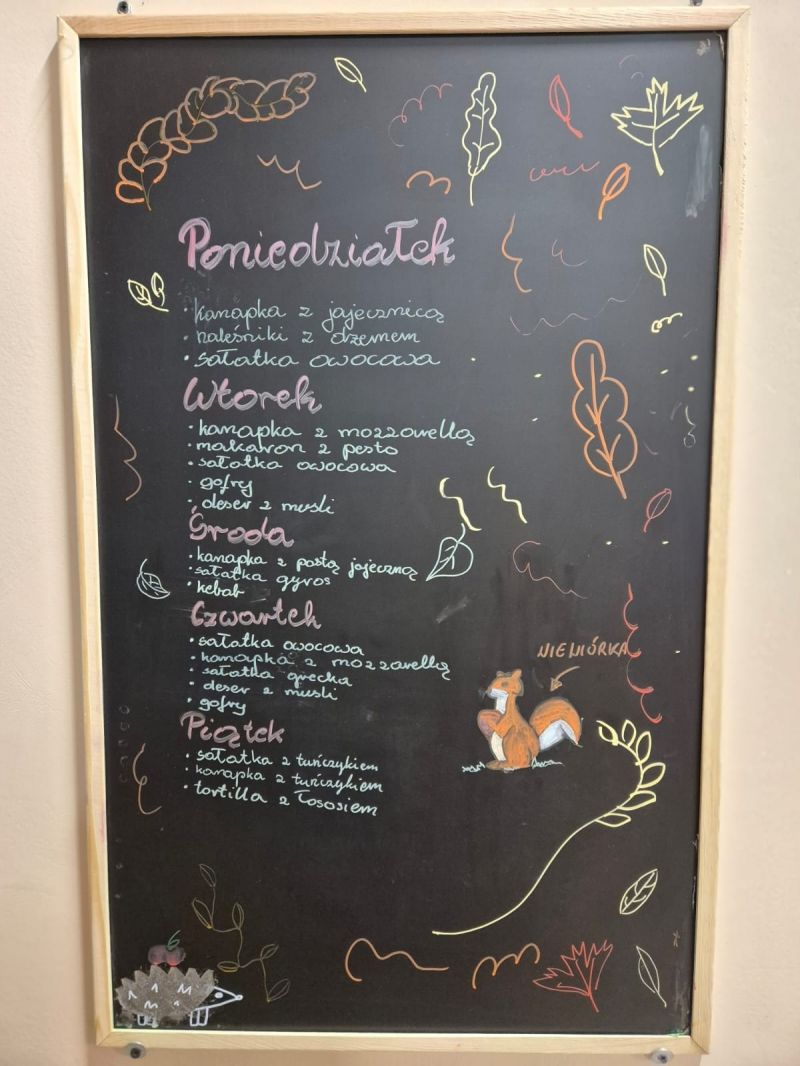 Poniedziałek
• kanapka z jajecznicą
• naleśniki z dżemem
• sałatka owocowa
Wtorek
• kanapka z mozzarellą
• makaron z pesto
• sałatka owocowa
• gofry
• deser z musli
Środa
• kanapka z pastą jajeczną
• sałatka gyros
• kebab
Czwartek
• sałatka owocowa
• kanapka z mozzarellą
• sałatka grecka
• deser z musli
• gofry
Piątek
• sałatka z tuńczykiem
• kanapka z tuńczykiem
• tortilla z łososiem
WIEWIÓRKA